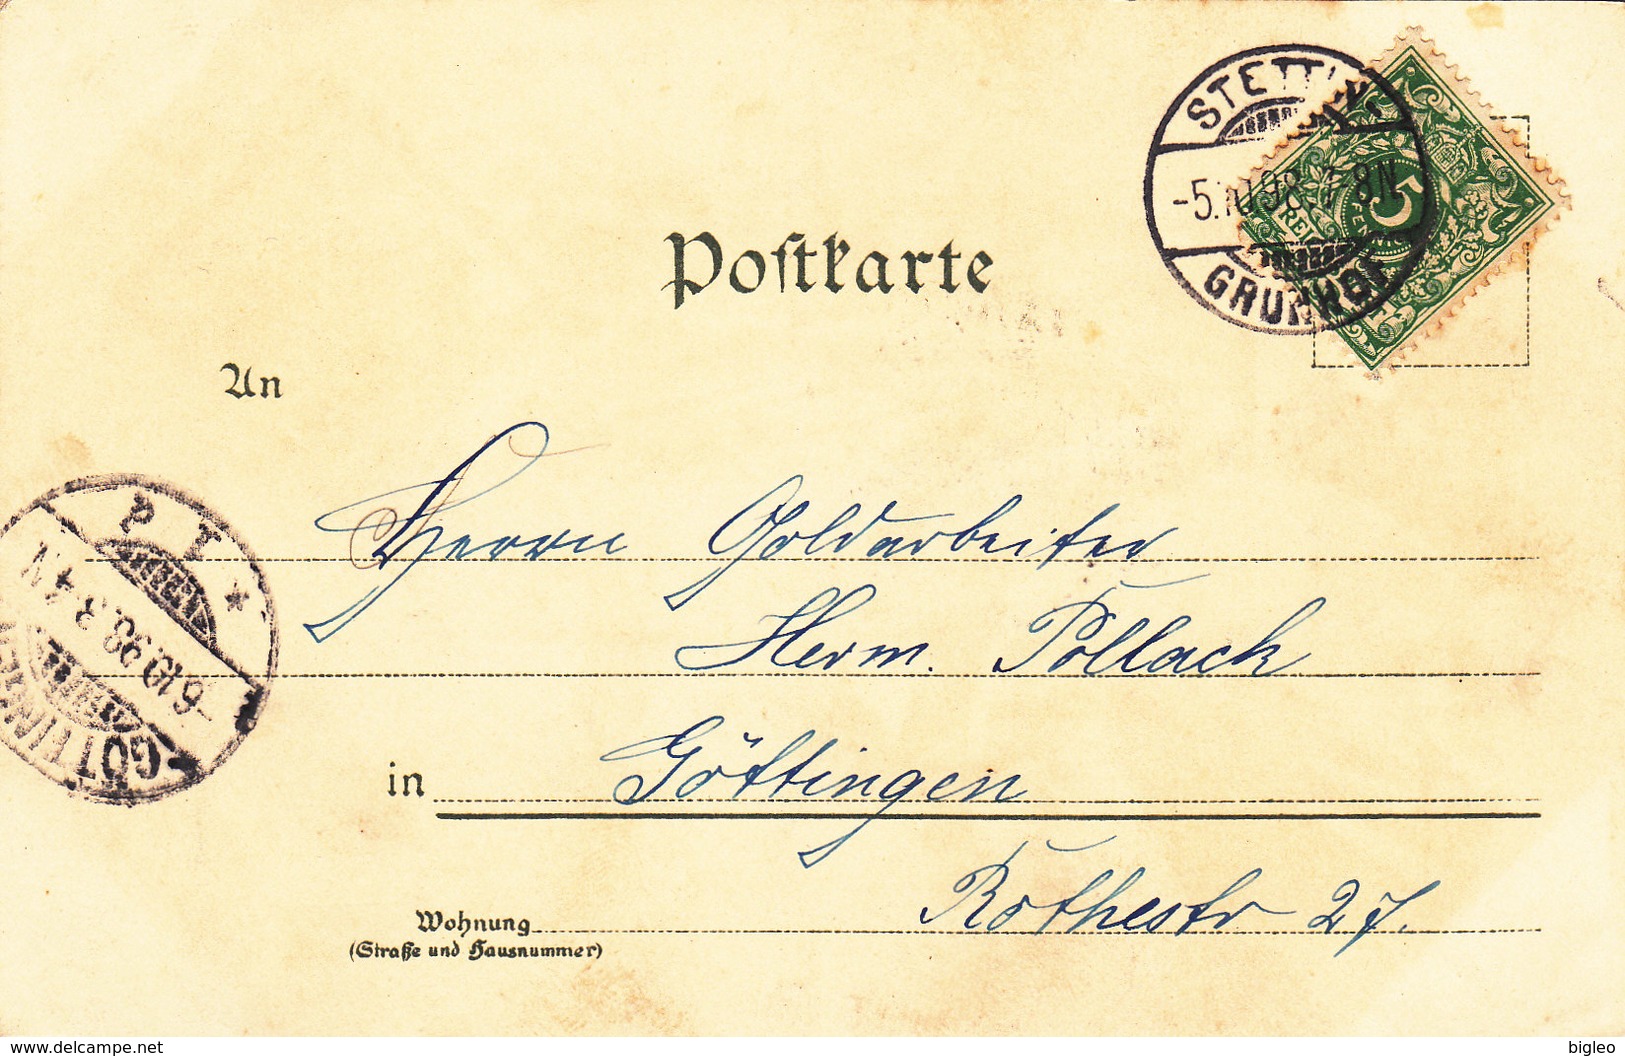 STETTIN
-5.10.98. 7-8N
GRÜNHOF
5
Postkarte
An
Herrn Goldarbeiter
Herm. Pollack
in Göttingen
Rothestr 27.
Wohnung
(Straße und Hausnummer)
GÖTTINGEN
-6.10.98. 3-4 N
* P T
www.delcampe.net
bigleo